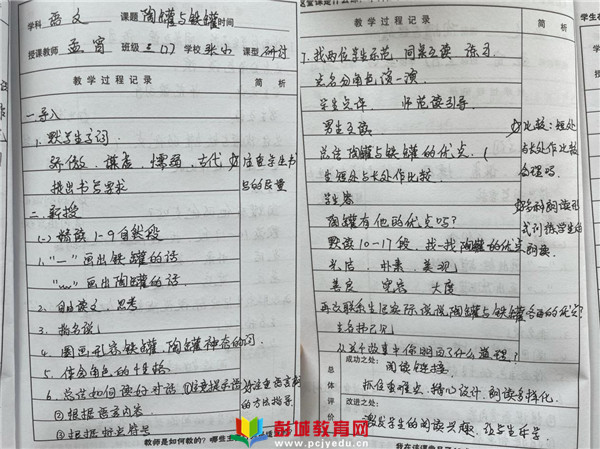 学科 语文 课题 陶罐与铁罐 时间
授课教师 孟 班级 三(7) 学校 张小 课型 研讨
教学过程记录 简析
一、导入
1. 默写生字词
骄傲 谦虚 懦弱 古代 好:注重学生书
提出书写要求 写的质量
二、新授
(一) 精读1-9自然段
1. "—" 画出铁罐的话
"﹏" 画出陶罐的话
2. 自由读文,思考
3. 指名说
4. 圈画形容铁罐、陶罐神态的词
5. 体会角色的性格
6. 总结如何读好对话 ①注意提示语 好:注重语言
②根据语言内容 的方法指导
③根据标点符号
教师是如何教的?哪些主
教学过程记录 简析
7. 找两位学生示范 同桌互读 练习
生名分角色读一演
学生点评 师范读引导
男生互读 好比较:短处
总结陶罐与铁罐的优点 与长处作比较
生短处与长处作比较 合理吗
学生答
陶罐有他的优点吗? 好:多种朗读形
默读10-17段,找一找陶罐的优点 式训练学生的
光洁 朴素 美观 朗读
善良 坚实 大度
再次联系生活实际说说陶罐与铁罐各自的优点?
从这个故事中你明白了什么道理?
总体评价
成功之处:
阅读链接
抓住重难点,精心设计,朗读多样化
改进之处:
激发学生的阅读兴趣,让学生乐学
彭城教育网
www.pcjyedu.cn